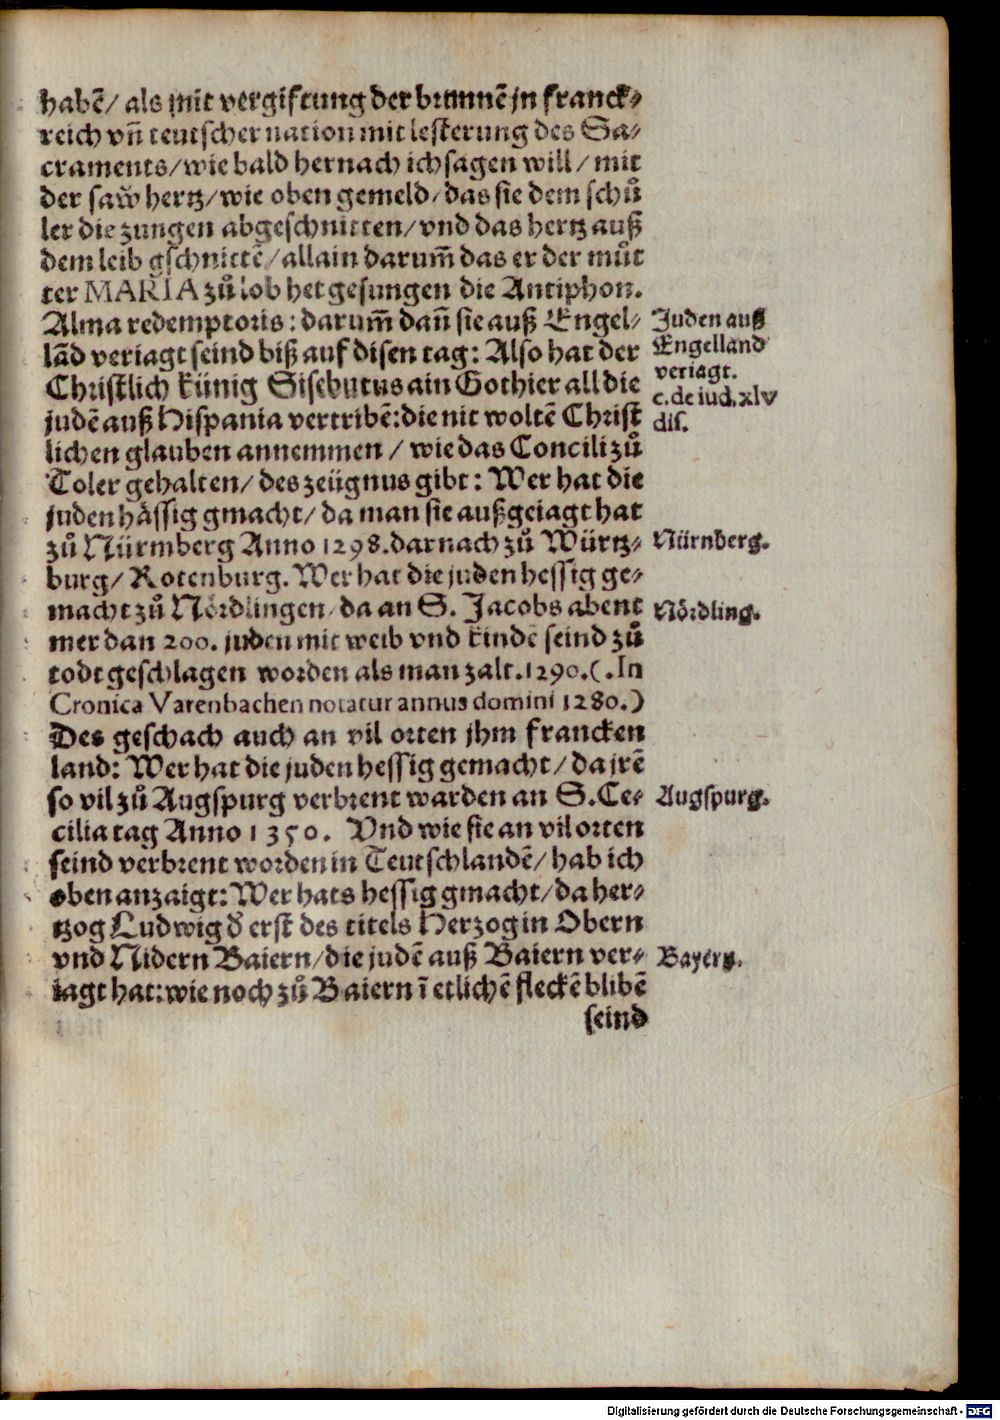 habē/ als mit vergiftung der brunnē jn franck⸗
reich vñ teutscher nation mit lesterung des Sa⸗
craments/ wie bald hernach ich sagen will/ mit
der saw̆ hertz/ wie oben gemeld/ das sie dem schů
ler die zungen abgeschnitten/ vnd das hertz auß
dem leib gschnittē/ allain darum̄ das er der můt
ter MARIA zů lob het gesungen die Antiphon.
Alma redemptoris: darum̄ dañ sie auß Engel⸗
lād veriagt seind biß auf disen tag: Also hat der
Christlich künig Sisebutus ain Gothier all die
judē auß Hispania vertribē: die nit woltē Christ
lichen glauben annemmen / wie das Concili zů
Toler gehalten/ des zeügnus gibt: Wer hat die
juden hässig gmacht/ da man sie außgeiagt hat
zů Nürmberg Anno 1298. darnach zů Würtz⸗
burg/ Rotenburg. Wer hat die juden hessig ge⸗
macht zů Nördlingen/ da an S. Jacobs abent
mer dan 200. juden mit weib vnd kindē seind zů
todt geschlagen worden als man zalt. 1290. (. In
Cronica Varenbachen notatur annus domini 1280.)
Des geschach auch an vil orten jhm francken
land: Wer hat die juden hessig gemacht/ da jrē
so vil zů Augspurg verbrent warden an S. Ce⸗
cilia tag Anno 1350. Vnd wie sie an vil orten
seind verbrent worden in Teutschlandē/ hab ich
oben anzaigt: Wer hats hessig gmacht/ da her⸗
tzog Ludwig d̕ erst des titels Herzog in Obern
vnd Nidern Baiern/ die judē auß Baiern ver⸗
iagt hat: wie noch zů Baiern ī etlichē fleckē blibē
seind
Juden auß
Engelland
veriagt.
c. de iud. xlv
dis.
Nürnberg.
Nördling.
Augspurg.
Bayern.
Digitalisierung gefördert durch die Deutsche Forschungsgemeinschaft - DFG